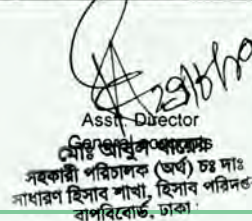 Asstt. Director
General Accounts
মোঃ আবুল খায়ের
সহকারী পরিচালক (অর্থ) চঃ দাঃ
সাধারণ হিসাব শাখা, হিসাব পরিদপ্তর
বাপবিবোর্ড, ঢাকা।